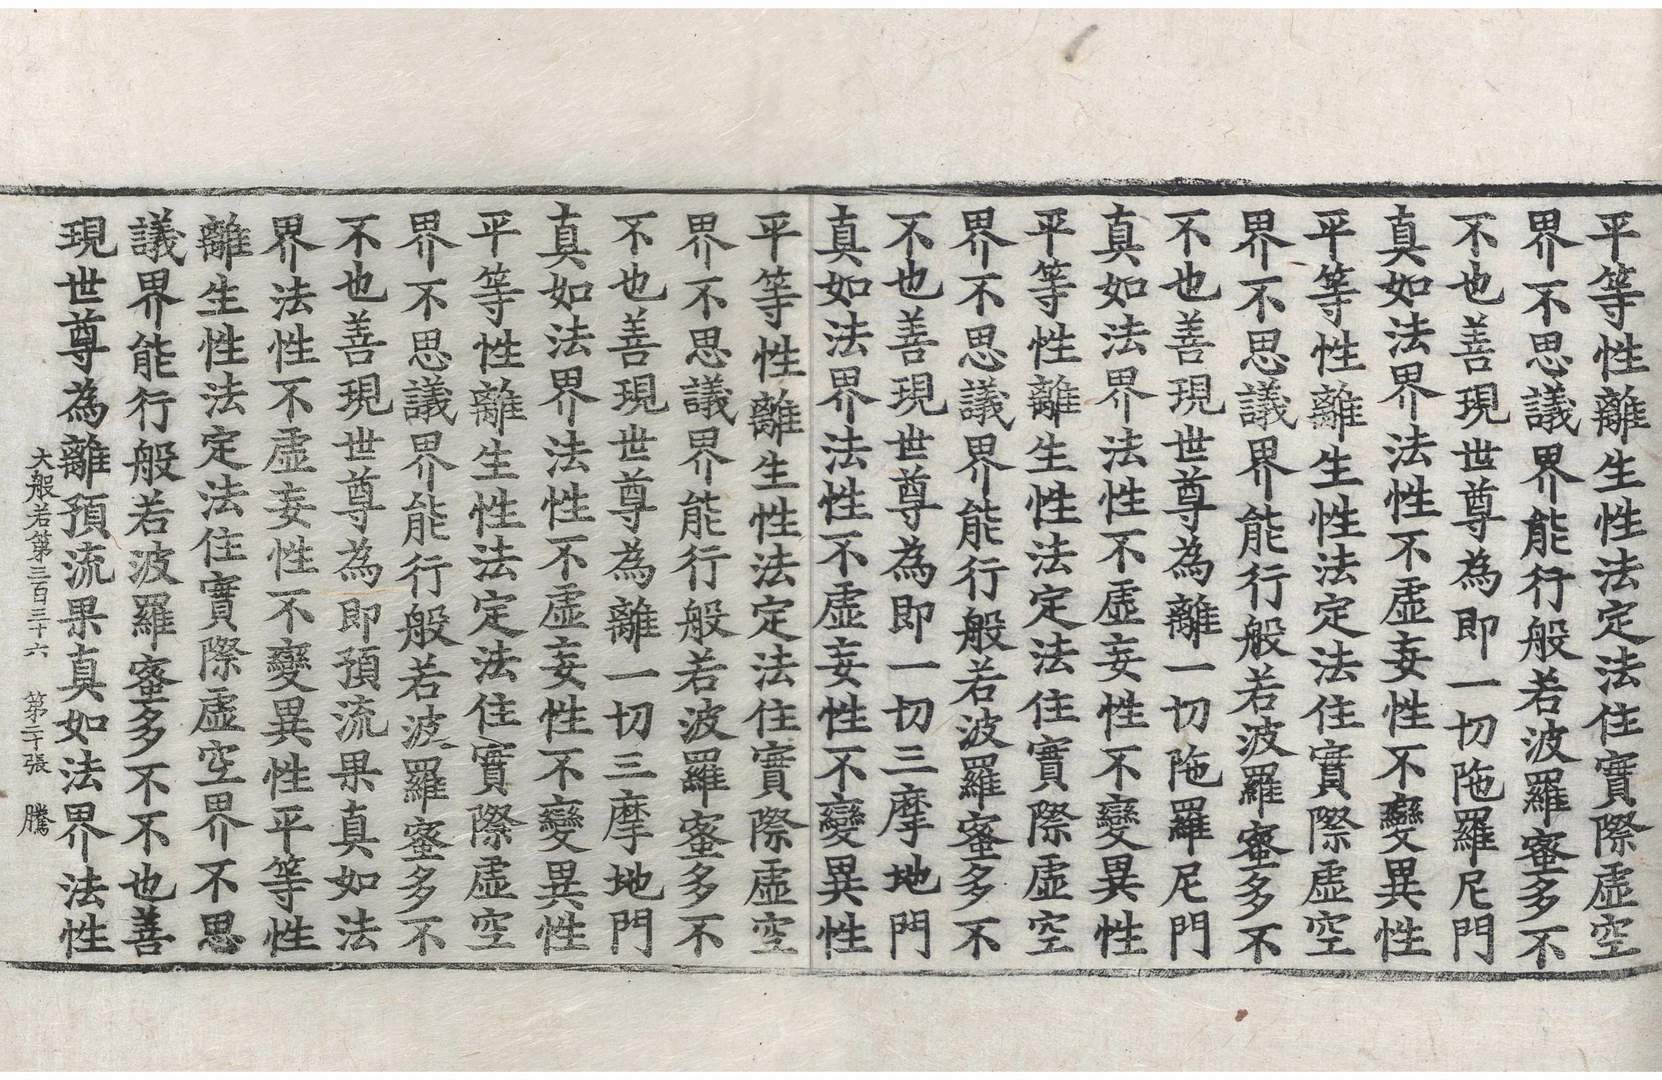 平等性離生性法定法住實際虛空
界不思議界能行般若波羅蜜多不
不也善現世尊為即一切陁羅尼門
真如法界法性不虛妄性不變異性
平等性離生性法定法住實際虛空
界不思議界能行般若波羅蜜多不
不也善現世尊為離一切陁羅尼門
真如法界法性不虛妄性不變異性
平等性離生性法定法住實際虛空
界不思議界能行般若波羅蜜多不
不也善現世尊為即一切三摩地門
真如法界法性不虛妄性不變異性
平等性離生性法定法住實際虛空
界不思議界能行般若波羅蜜多不
不也善現世尊為離一切三摩地門
真如法界法性不虛妄性不變異性
平等性離生性法定法住實際虛空
界不思議界能行般若波羅蜜多不
不也善現世尊為即預流果真如法
界法性不虛妄性不變異性平等性
離生性法定法住實際虛空界不思
議界能行般若波羅蜜多不不也善
現世尊為離預流果真如法界法性
大般若第三百三十六 第二十張 騰